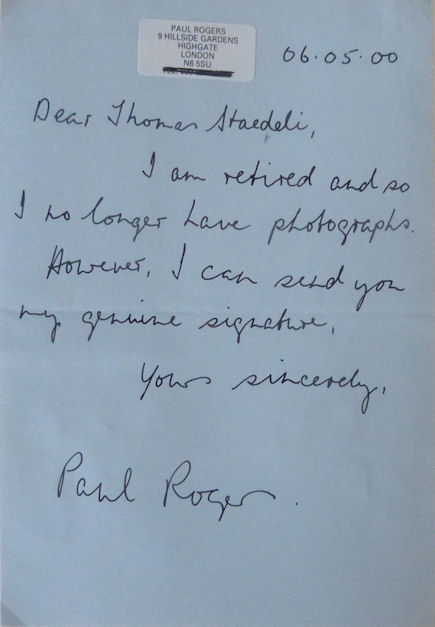 PAUL ROGERS
9 HILLSIDE GARDENS
HIGHGATE
LONDON
N6 5SU
06.05.00
Dear Thomas Staedeli,
I am retired and so
I no longer have photographs.
However, I can send you
my genuine signature.
Yours sincerely,
Paul Rogers.